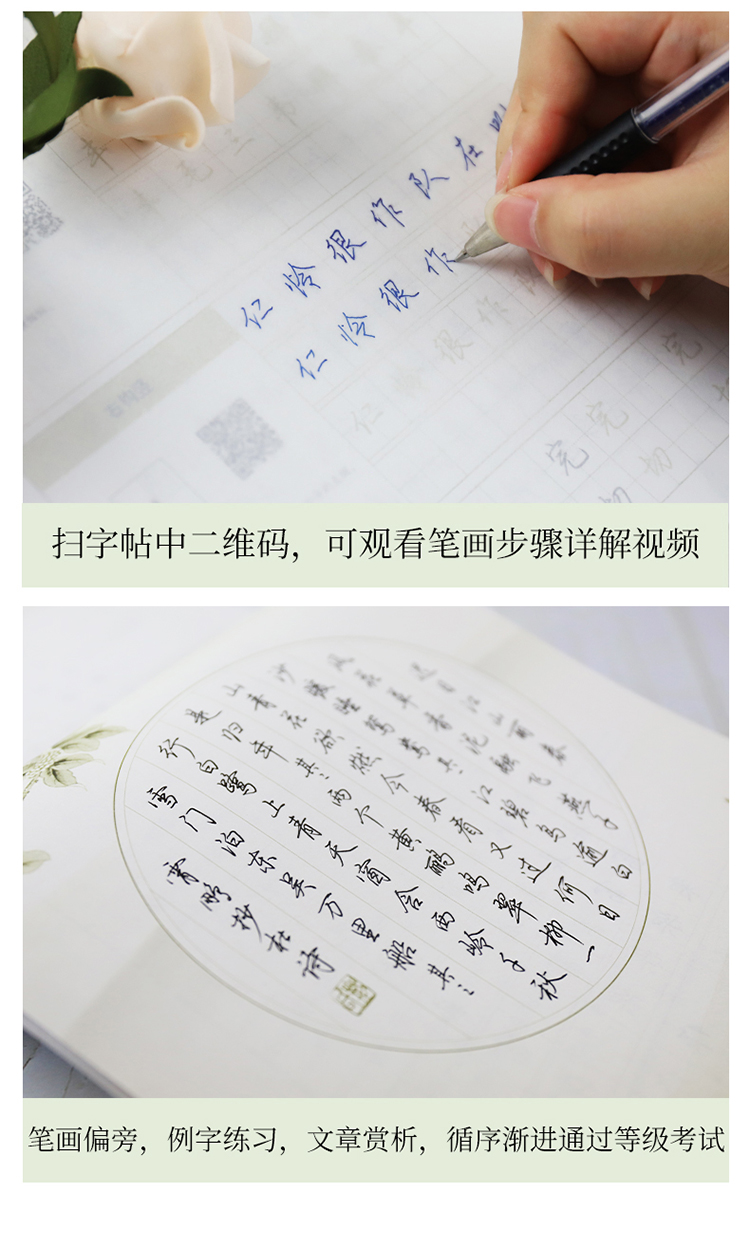 仁怜很作队在
仁怜很作
仁怜很作队
完完完
切切
扫字帖中二维码，可观看笔画步骤详解视频
迟日江山丽春
风花草香泥融飞燕子
沙暖睡鸳鸯其一江碧鸟逾白
山青花欲燃今春看又过何日
是归年其二两个黄鹂鸣翠柳一
行白鹭上青天窗含西岭千秋
雪门泊东吴万里船其三
宵鹏抄杜诗
笔画偏旁，例字练习，文章赏析，循序渐进通过等级考试